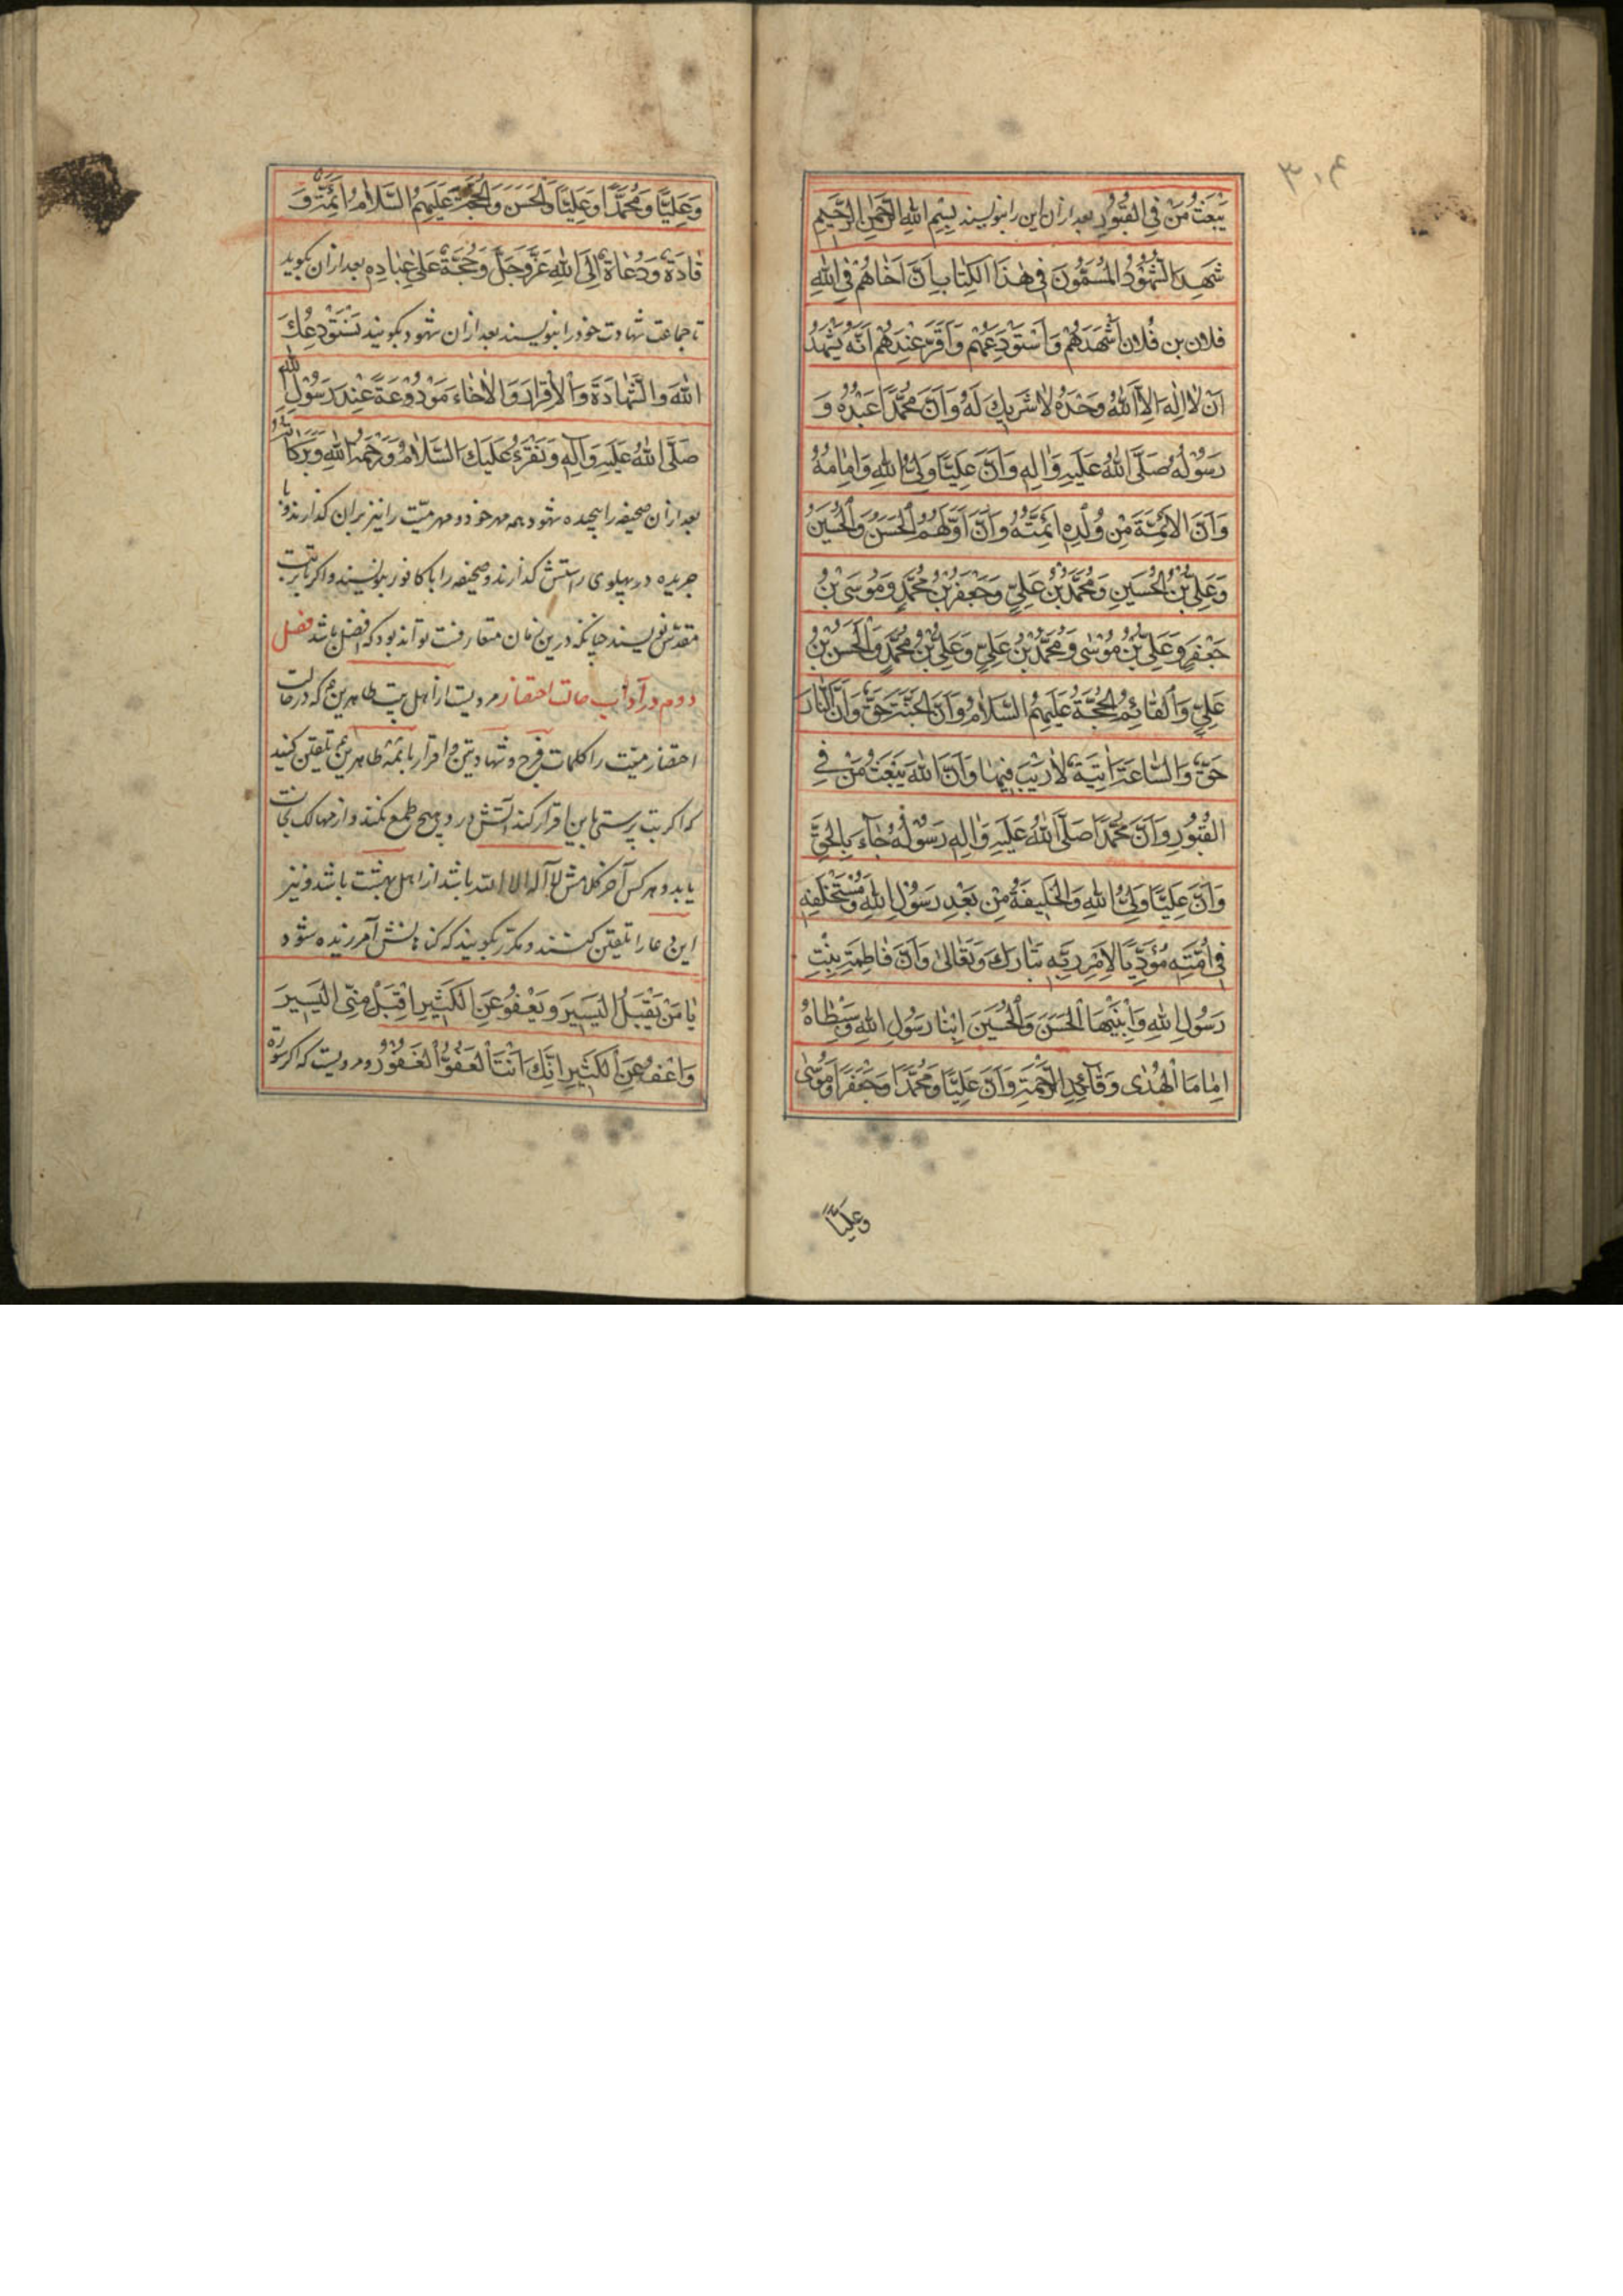 ۳۰۴
يَبْعَثُ مَنْ فِي الْقُبُورِ بعد ازان این را بنویسند بِسْمِ اللهِ الرَّحْمٰنِ الرَّحِيمِ
شَهِدَ الشُّهُودُ الْمُسَمَّوْنَ فِي هٰذَا الْكِتَابِ اَنَّ اَخَاهُمْ فِي اللهِ
فلان بن فُلان اَشْهَدَهُمْ وَاَسْتَوْدَعَهُمْ وَاَقَرَّ عِنْدَهُمْ اَنَّهُ يَشْهَدُ
اَنْ لَا اِلٰهَ اِلَّا اللهُ وَحْدَهُ لَا شَرِيكَ لَهُ وَاَنَّ مُحَمَّدًا عَبْدُهُ وَ
رَسُولُهُ صَلَّى اللهُ عَلَيْهِ وَاٰلِهِ وَاَنَّ عَلِيًّا وَلِيُّ اللهِ وَاِمَامُهُ
وَاَنَّ الْاَئِمَّةَ مِنْ وُلْدِهِ اَئِمَّتُهُ وَاَنَّ اَوَّلَهُمُ الْحَسَنُ وَالْحُسَيْنُ
وَعَلِيُّ بْنُ الْحُسَيْنِ وَمُحَمَّدُ بْنُ عَلِيٍّ وَجَعْفَرُ بْنُ مُحَمَّدٍ وَمُوسَى بْنُ
جَعْفَرٍ وَعَلِيُّ بْنُ مُوسٰى وَمُحَمَّدُ بْنُ عَلِيٍّ وَعَلِيُّ بْنُ مُحَمَّدٍ وَالْحَسَنُ بْنُ
عَلِيٍّ وَالْقَائِمُ الْحُجَّةُ عَلَيْهِمُ السَّلَامُ وَاَنَّ الْجَنَّةَ حَقٌّ وَاَنَّ النَّارَ
حَقٌّ وَالسَّاعَةَ اٰتِيَةٌ لَا رَيْبَ فِيهَا وَاَنَّ اللهَ يَبْعَثُ مَنْ فِي
الْقُبُورِ وَاَنَّ مُحَمَّدًا صَلَّى اللهُ عَلَيْهِ وَاٰلِهِ رَسُولُهُ جَاءَ بِالْحَقِّ
وَاَنَّ عَلِيًّا وَلِيُّ اللهِ وَالْخَلِيفَةُ مِنْ بَعْدِ رَسُولِ اللهِ وَمُسْتَخْلَفُهُ
فِي اُمَّتِهِ مُؤَدِّيًا لِاَمْرِ رَبِّهِ تَبَارَكَ وَتَعَالٰى وَاَنَّ فَاطِمَةَ بِنْتُ
رَسُولِ اللهِ وَابْنَيْهَا الْحَسَنَ وَالْحُسَيْنَ اِبْنَا رَسُولِ اللهِ وَسِبْطَاهُ
اِمَامَا الْهُدٰى وَقَائِدِا الرَّحْمَةِ وَاَنَّ عَلِيًّا وَمُحَمَّدًا وَجَعْفَرًا وَمُوسٰى
وعليًّا
وَعَلِيًّا وَمُحَمَّدًا وَعَلِيًّا وَالْحَسَنَ وَالْحُجَّةَ عَلَيْهِمُ السَّلَامُ اَئِمَّةٌ وَ
قَادَةٌ وَدُعَاةٌ اِلَى اللهِ عَزَّ وَجَلَّ وَحُجَّةٌ عَلٰى عِبَادِهِ بعد ازان بگوید
تا جماعت شهادت خود را بنویسند بعد ازان شهود بگویند نَسْتَوْدِعُكَ
اللهَ وَالشَّهَادَةَ وَالْاِقْرَارَ وَالْاِخَاءَ مَوْدُوعَةً عِنْدَ رَسُولِ اللهِ
صَلَّى اللهُ عَلَيْهِ وَاٰلِهِ وَنَقْرَءُ عَلَيْكَ السَّلَامُ وَرَحْمَةُ اللهِ وَبَرَكَاتُهُ
بعد ازان صحیفه را پیچیده شهود همه مهر خود و مهر میّت را نیز بران کذارند و با
جریده در پهلوی راستش کذارند و صحیفه را با کافور بنویسند و اکر با تربت
مقدّس نویسند چنانکه درین زمان متعارفست تواند بود که افضل باشد فصل
دوم در آداب حالت احتضار مرویست از اهل بیت طاهرین ع که در حالت
احتضار میّت را کلمات فرج و شهادتین و اقرار بائمهٔ طاهرین ع تلقین کنید
که اکر بت پرستی باین اقرار کند آتش در وی هیچ طمع نکند و از مهالک نجات
یابد و هر کس آخر کلامش لا آله الا الله باشد از اهل بهشت باشد و نیز
این دعا را تلقین کنند و مکرّر بگویند که کناهانش آمرزیده شود
يَا مَنْ يَقْبَلُ الْيَسِيرَ وَيَعْفُو عَنِ الْكَثِيرِ اِقْبَلْ مِنِّي الْيَسِيرَ
وَاعْفُ عَنِ الْكَثِيرِ اِنَّكَ اَنْتَ الْعَفُوُّ الْغَفُورُ و مرویست که اکر سوره